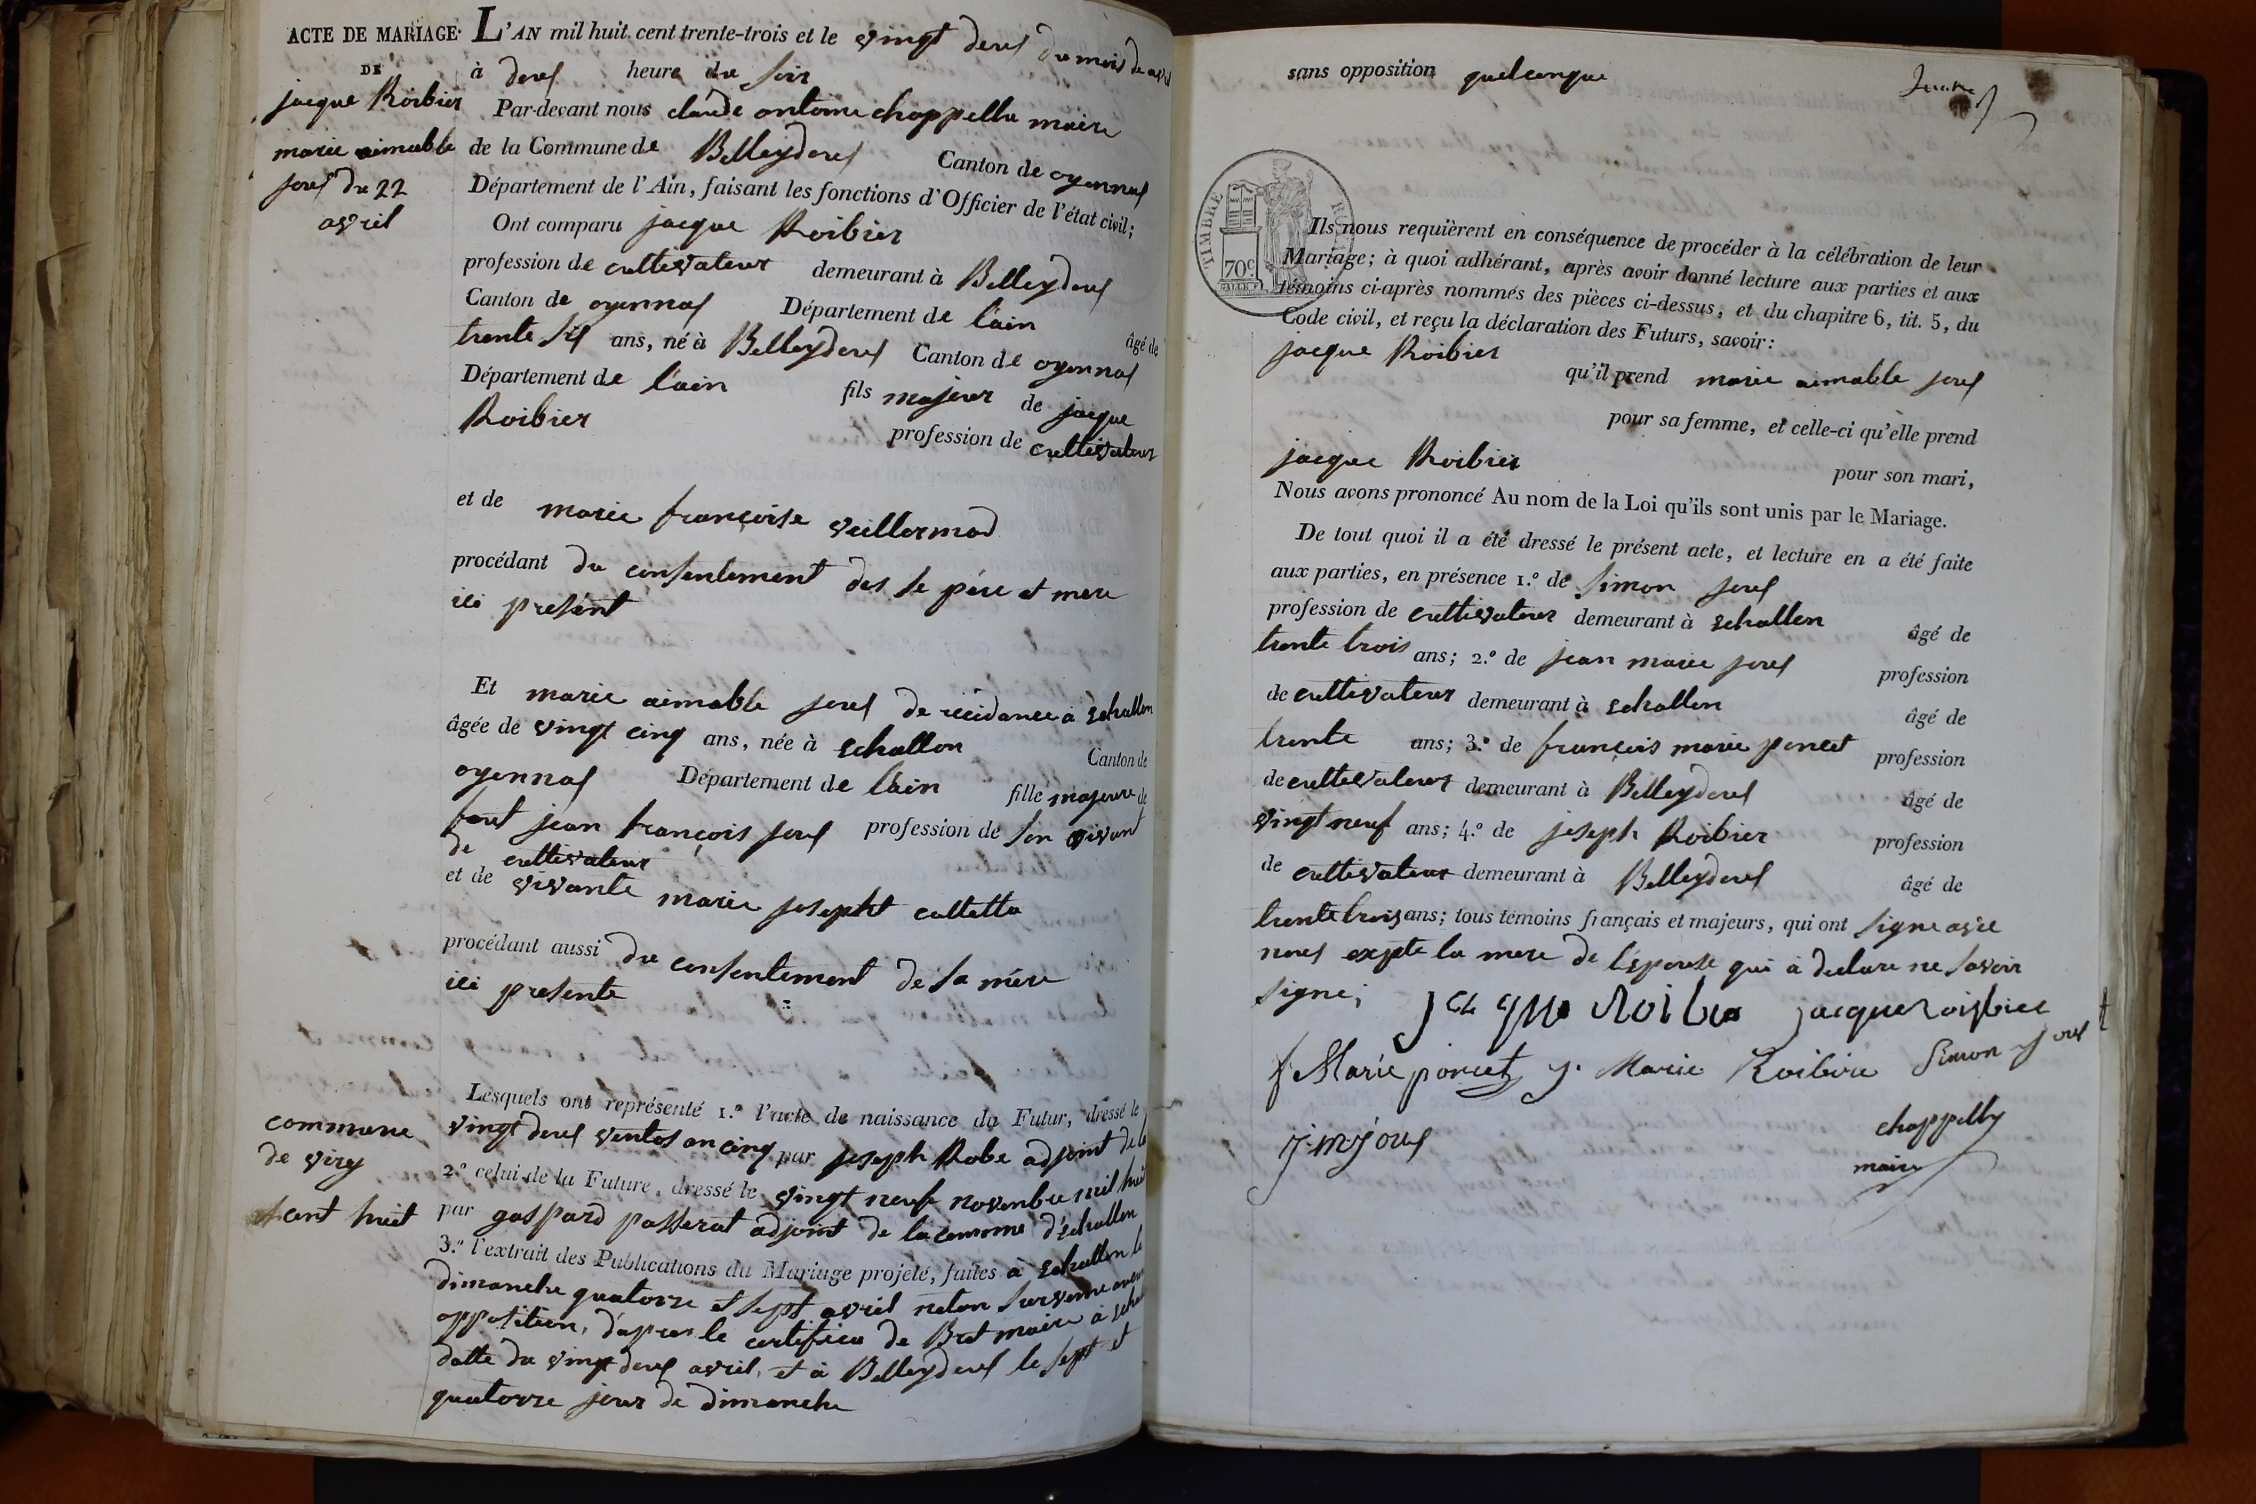 ACTE DE MARIAGE
DE
jacque Roibier
marie aimable
joux du 22
avril
L'AN mil huit cent trente-trois et le vingt deux du mois de avril
à deux heure du soir
Par-devant nous claude antoine chappellu maire
de la Commune de Belleydoux Canton de oyonnax
Département de l'Ain, faisant les fonctions d'Officier de l'état civil;
Ont comparu jacque Roibier
profession de cultivateur demeurant à Belleydoux
Canton de oyonnax Département de l'ain âgé de
trente six ans, né à Belleydoux Canton de oyonnax
Département de l'ain fils majeur de jacque
Roibier profession de cultivateur
et de marie françoise vuillermod
procédant du consentement des se père et mere
ici present
Et marie aimable joux de recidance à Echallon
âgée de vingt cinq ans, née à Echallon Canton de
oyonnax Département de l'ain fille majeure de
feut jean françois joux profession de son vivant
de cultivateur
et de vivante marie josepht colletta
procédant aussi du consentement de sa mére
ici presente
Lesquels ont représenté 1.º l'acte de naissance du Futur, dressé le
vingt deux ventos an cinq par joseph Robe adjoint de la
commune
de viry
2.º celui de la Future, dressé le vingt neuf novembre mil huit
cent huit
par gaspard passerat adjoint de la comune d'échallon
3.º l'extrait des Publications du Mariage projeté, faites à Echallon le
dimanche quatorze et sept avril neton survenue aucun
opposition, d'apres le certificu de Bret maire à Echal
datte du vingt deux avril, et à Belleydoux le sept et
quatorze jour de dimanche
sans opposition quelconque
TIMBRE
70c
Ils nous requièrent en conséquence de procéder à la célébration de leur
Mariage; à quoi adhérant, après avoir donné lecture aux parties et aux
témoins ci-après nommés des pièces ci-dessus, et du chapitre 6, tit. 5, du
Code civil, et reçu la déclaration des Futurs, savoir:
jacque Roibier qu'il prend marie aimable joux
pour sa femme, et celle-ci qu'elle prend
jacque Roibier pour son mari,
Nous avons prononcé Au nom de la Loi qu'ils sont unis par le Mariage.
De tout quoi il a été dressé le présent acte, et lecture en a été faite
aux parties, en présence 1.º de simon joux
profession de cultivateur demeurant à Echallon âgé de
trente trois ans; 2.º de jean marie joux profession
de cultivateur demeurant à Echallon âgé de
trente ans; 3.º de françois marie poncet profession
de cultivateur demeurant à Belleydoux âgé de
vingt neuf ans; 4.º de joseph Roibier profession
de cultivateur demeurant à Belleydoux âgé de
trente trois ans; tous témoins français et majeurs, qui ont signe avec
nous expte la mere de l'épouse qui à declare ne savoir
signe;
jacque Roibier
f. Marie poncet j. Marie Roibier Simon joux
j. m. joux
chappellu
maire